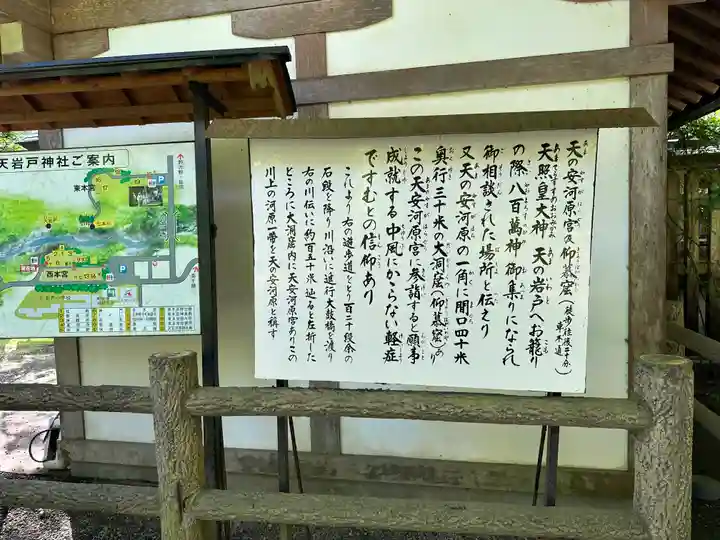 天岩戸神社ご案内
東本宮
西本宮
天の安河原宮及仰慕窟(徒歩往復三十分 車不通)
天照皇大神 天の岩戸へお籠り
の際八百萬神 御集りになられ
御相談された場所と伝えり
又天の安河原の一角に間口四十米
奥行三十米の大洞窟(仰慕窟)あり
この天安河原宮に参詣すると願事
成就する中風にからない軽症
ですむとの信仰あり
これより右の遊歩道を
石段を降り川沿いに進行太鼓橋を渡り
右の川伝いに約百五十米
どころに大洞窟内に天安河原宮ありこの
川上の河原一帯を天の安河原と称す